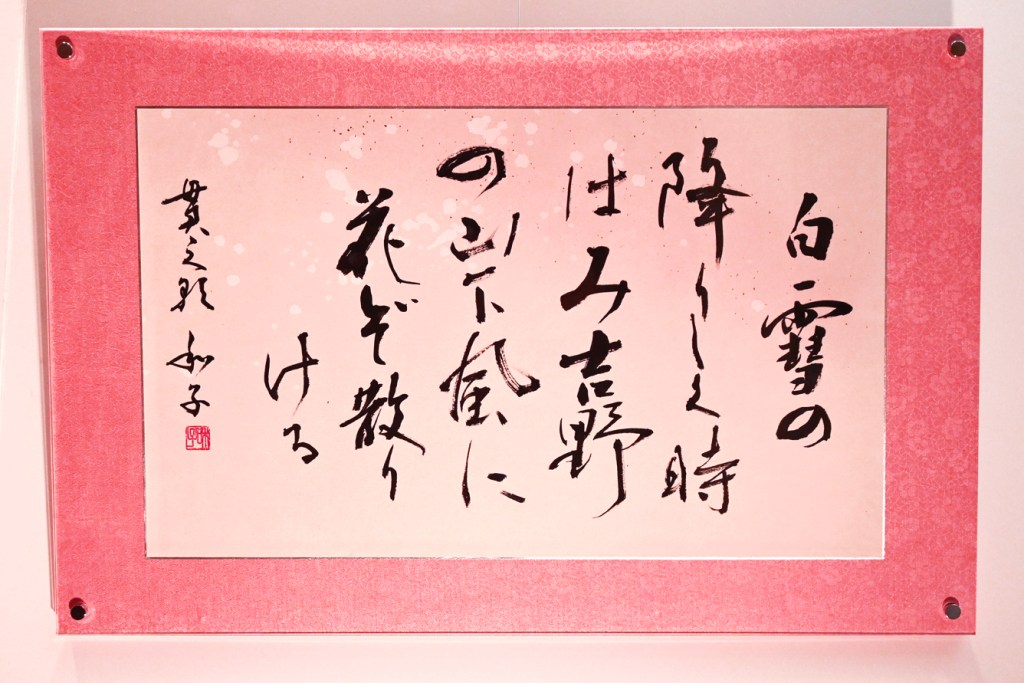 白雪の
降りしく時
はみ吉野
の山下風に
花ぞ散り
ける
貫之歌 和子